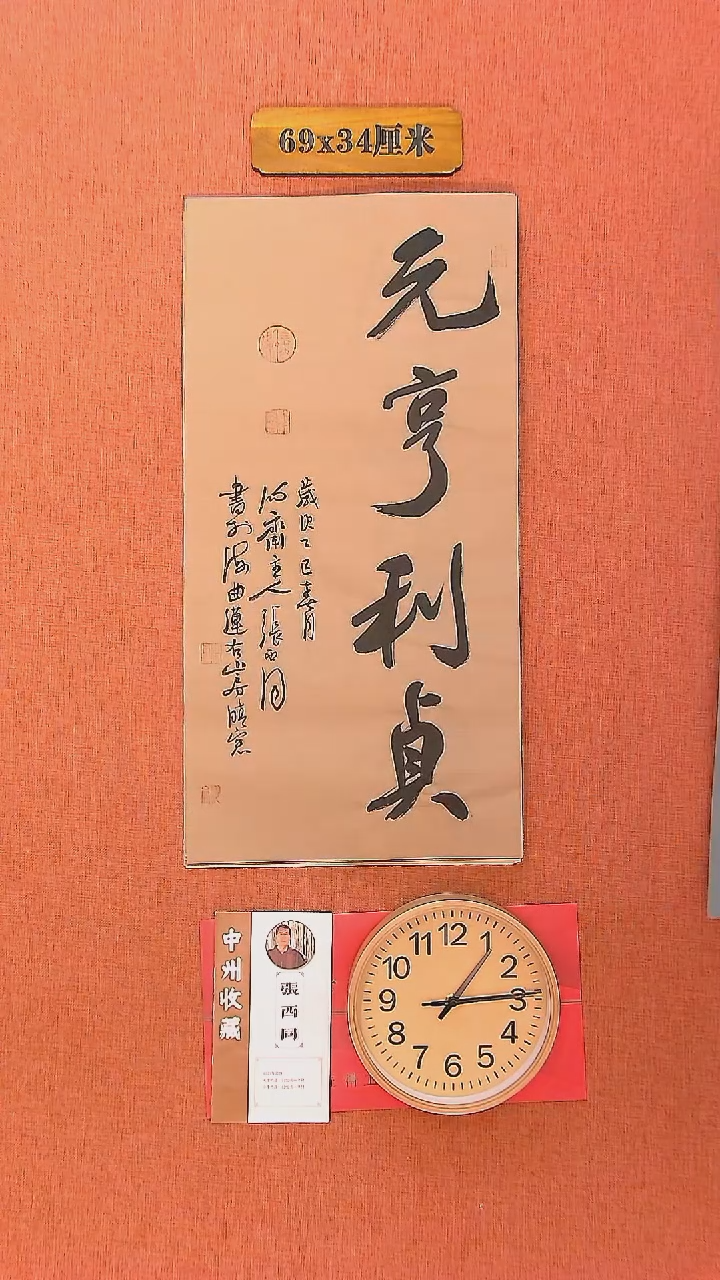 69x34厘米
元亨利贞
歲次乙巳春月
主人張西同
書於海曲蓮右山房晴窓
中州收藏
張西同
12
1
2
3
4
5
6
7
8
9
10
11